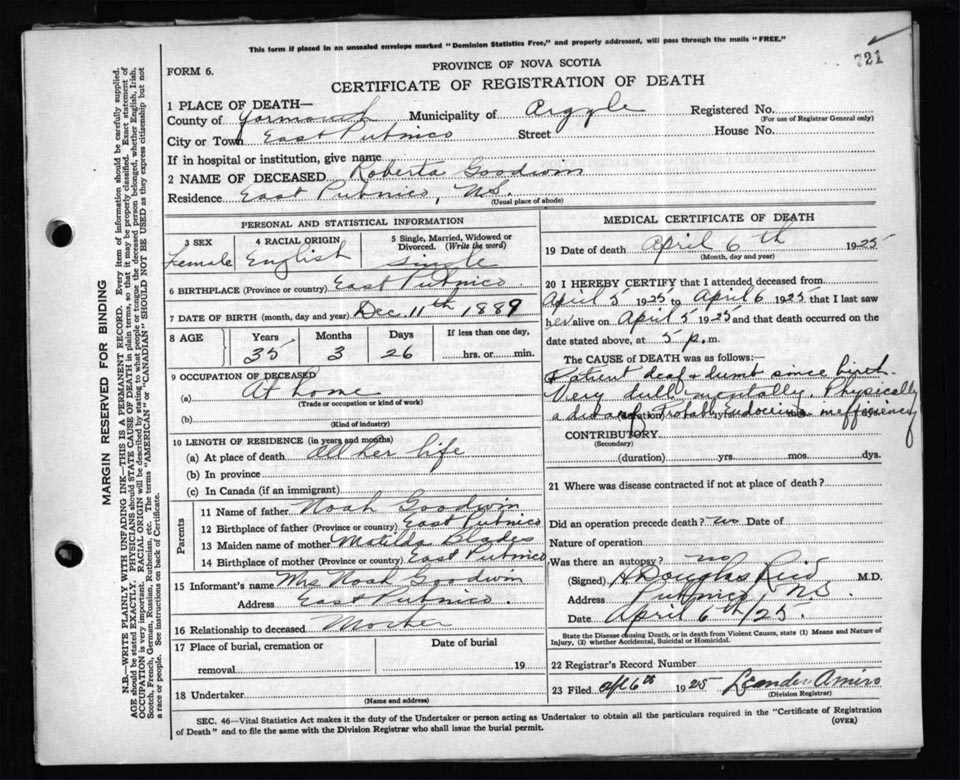 This form if placed in an unsealed envelope marked "Dominion Statistics Free," and properly addressed, will pass through the mails "FREE."
721
FORM 6.
PROVINCE OF NOVA SCOTIA
CERTIFICATE OF REGISTRATION OF DEATH
1 PLACE OF DEATH—
County of Yarmouth Municipality of Argyle Registered No.
(For use of Registrar General only)
City or Town East Pubnico Street House No.
If in hospital or institution, give name
2 NAME OF DECEASED Roberta Goodwin
Residence East Pubnico, N.S.
(Usual place of abode)
PERSONAL AND STATISTICAL INFORMATION
3 SEX 4 RACIAL ORIGIN 5 Single, Married, Widowed or Divorced. (Write the word)
Female English Single
6 BIRTHPLACE (Province or country) East Pubnico
7 DATE OF BIRTH (month, day and year) Dec. 11th 1889
8 AGE Years Months Days If less than one day,
35 3 26 hrs. or min.
9 OCCUPATION OF DECEASED
(a) At home
(Trade or occupation or kind of work)
(b)
(Kind of industry)
10 LENGTH OF RESIDENCE (in years and months)
(a) At place of death all her life
(b) In province
(c) In Canada (if an immigrant)
Parents
11 Name of father Noah Goodwin
12 Birthplace of father (Province or country) East Pubnico
13 Maiden name of mother Matilda Blades
14 Birthplace of mother (Province or country) East Pubnico
15 Informant's name Mrs Noah Goodwin
Address East Pubnico.
16 Relationship to deceased Mother
17 Place of burial, cremation or Date of burial
removal 19
18 Undertaker
(Name and address)
MEDICAL CERTIFICATE OF DEATH
19 Date of death April 6th 1925
(Month, day and year)
20 I HEREBY CERTIFY that I attended deceased from
April 5 1925 to April 6 1925 that I last saw
her alive on April 5 1925 and that death occurred on the
date stated above, at 5 p.m.
The CAUSE of DEATH was as follows:—
Patient deaf & dumb since birth.
Very dull mentally. Physically
a dwarf. Probably endocrine inefficiency
CONTRIBUTORY
(Secondary)
(duration) yrs. mos. dys.
21 Where was disease contracted if not at place of death?
Did an operation precede death? no Date of
Nature of operation
Was there an autopsy? no
(Signed) Douglas Reid M.D.
Address Pubnico, N.S.
Date April 6th/25.
State the Disease causing Death, or in death from Violent Causes, state (1) Means and Nature of
Injury, (2) whether Accidental, Suicidal or Homicidal.
22 Registrar's Record Number
23 Filed Apl 6th 1925 Leander Amiro
(Division Registrar)
SEC. 46—Vital Statistics Act makes it the duty of the Undertaker or person acting as Undertaker to obtain all the particulars required in the "Certificate of Registration
of Death" and to file the same with the Division Registrar who shall issue the burial permit.
(OVER)
MARGIN RESERVED FOR BINDING
N.B.—WRITE PLAINLY WITH UNFADING INK—THIS IS A PERMANENT RECORD. Every item of information should be carefully supplied.
AGE should be stated EXACTLY. PHYSICIANS should STATE CAUSE OF DEATH in plain terms, so that it may be properly classified. Exact statement of
OCCUPATION is very important. RACIAL ORIGIN will be described by stating to what people or race the deceased person belonged, whether English, Irish,
Scotch, French, German, Russian, Ruthenian, etc. The terms "AMERICAN" or "CANADIAN" SHOULD NOT BE USED as they express citizenship but not
a race or people. See instructions on back of Certificate.